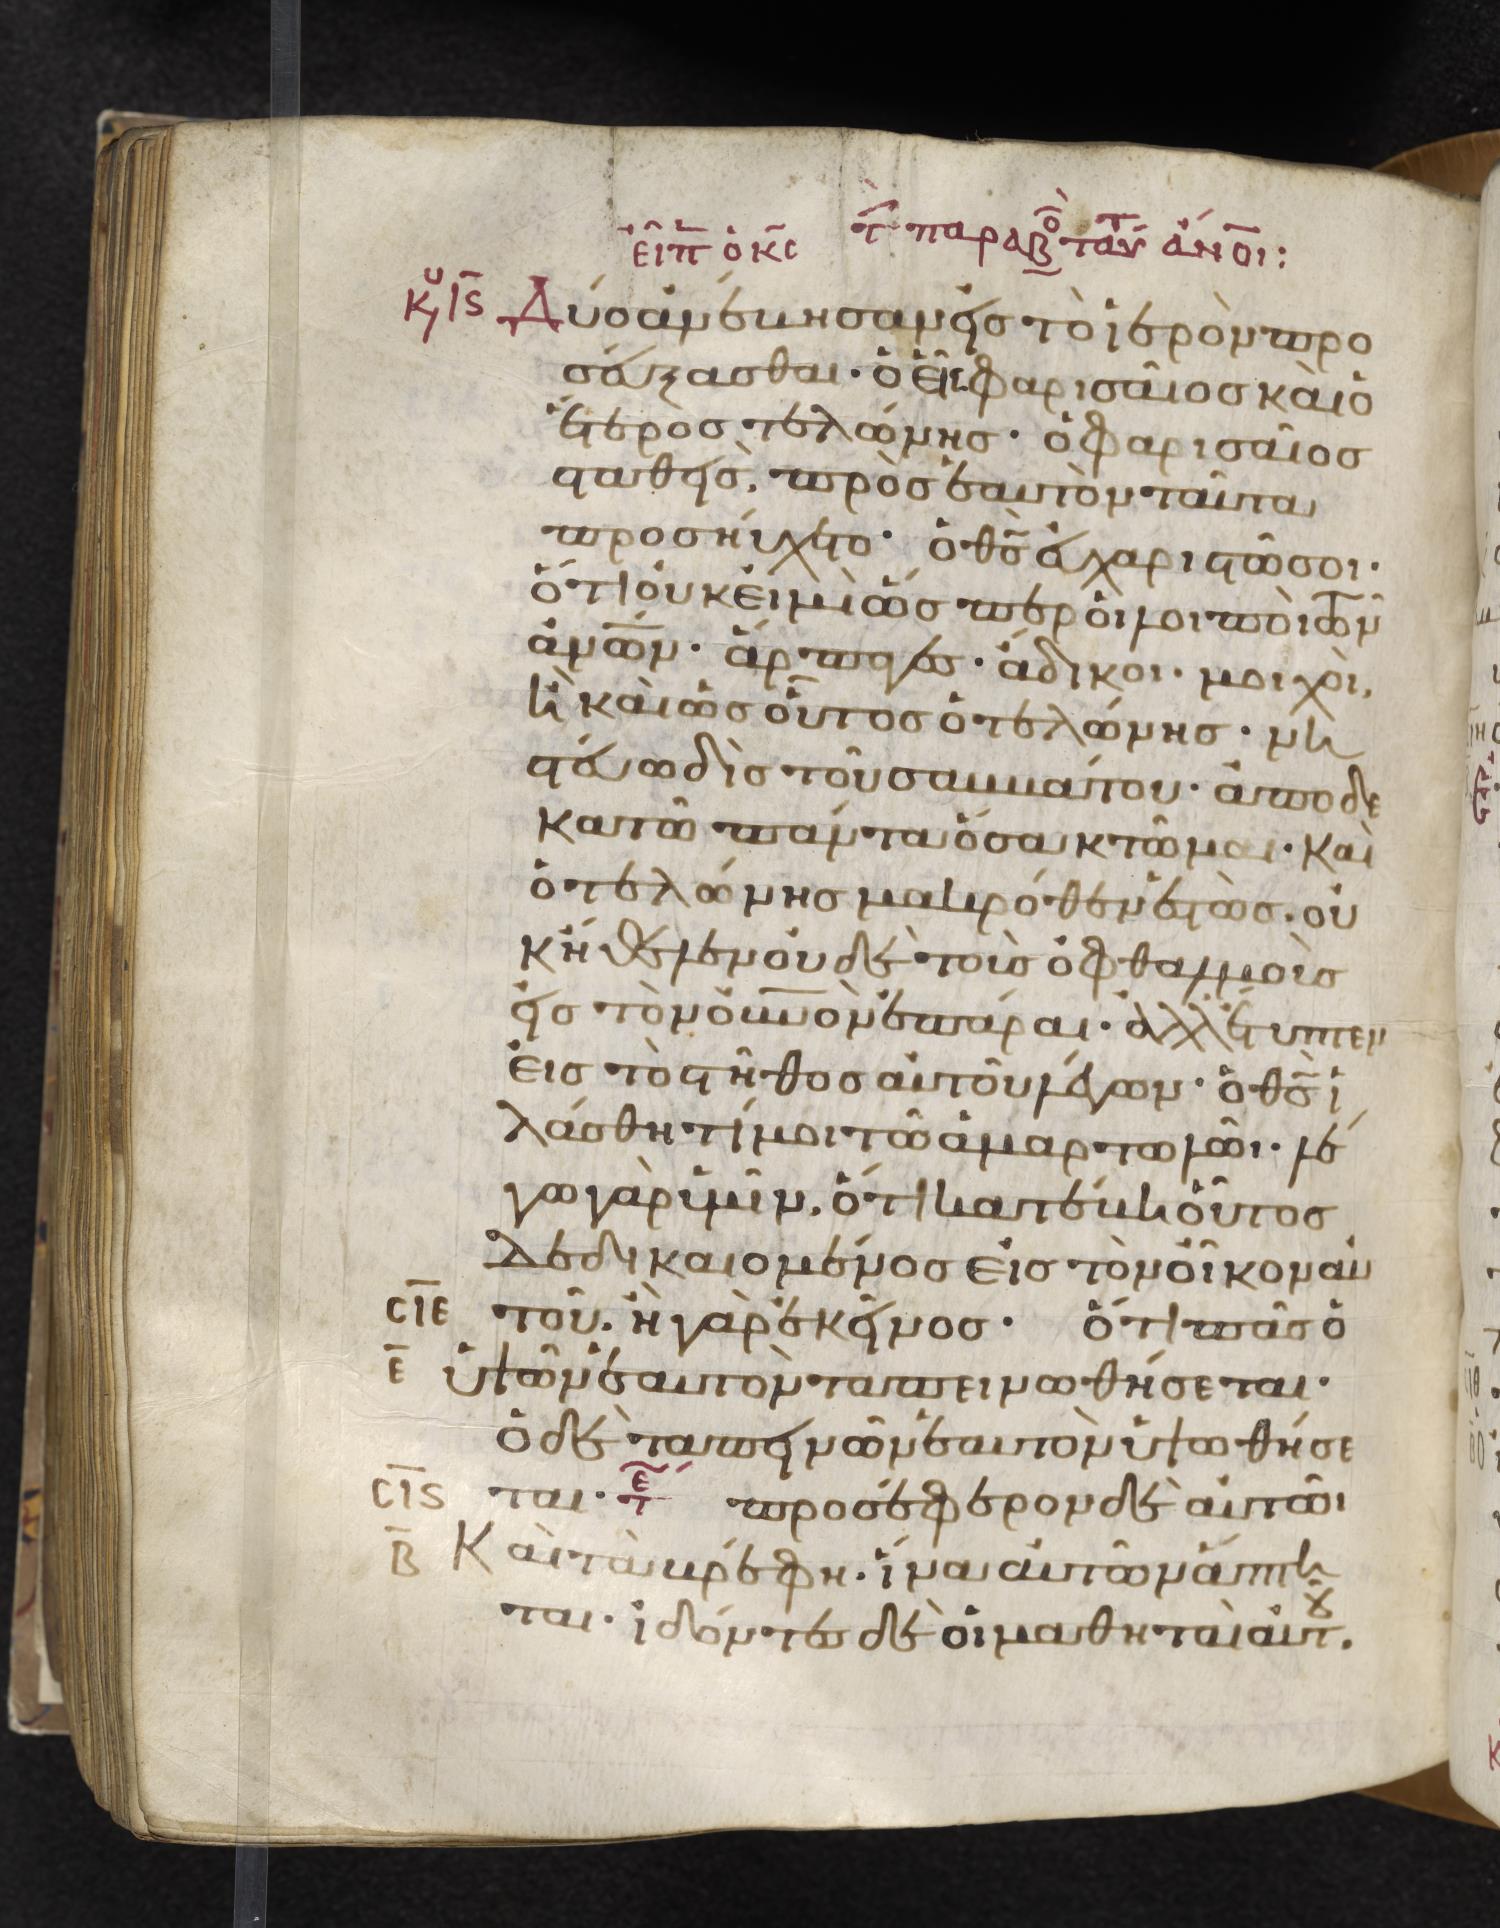 εἶπ ὁ κς τ παραβο ταύτ ἄνοι:
κυ ις Δύο ἀνέβησαν εἰς τὸ ἱερὸν προ
σεύξασθαι· ὁ εἷς φαρισαῖος καὶ ὁ
ἕτερος τελώνης· ὁ φαρισαῖος
σταθεὶς, πρὸς ἑαυτὸν ταῦτα
προσηύχετο· ὁ θς εὐχαριστῶ σοι·
ὅτι οὐκ εἰμὶ ὥσπερ οἱ λοιποὶ τῶν
ἀνων· ἅρπαγες· ἄδικοι· μοιχοὶ,
ἢ καὶ ὡς οὗτος ὁ τελώνης· νη
στεύω δὶς τοῦ σαββάτου· ἀποδε
κατῶ πάντα ὅσα κτῶμαι· Καὶ
ὁ τελώνης μακρόθεν ἑστὼς. οὐ
κ ἤθελεν οὐδὲ τοὺς ὀφθαλμοὺς
εἰς τὸν οὐνον ἐπᾶραι· ἀλλ' ἔτυπτεν
εἰς τὸ στῆθος αὐτοῦ λέγων· ὁ θς ἱ
λάσθητί μοι τῶ ἁμαρτωλῶι· λέ
γω γὰρ ὑμῖν, ὅτι κατέβη οὗτος
δεδικαιομένος εἰς τὸν οἶκον αὐ
σιε τοῦ. ἢ γὰρ ἐκεῖνος· ὅτι πᾶς ὁ
ε ὑψῶν ἑαυτὸν ταπεινωθήσεται·
ὁ δὲ ταπεινῶν ἑαυτὸν ὑψωθήσε
σις ται· τε προσέφερον δὲ αὐτῶι
β Καὶ τὰ βρέφη. ἵνα αὐτῶν ἅπτη
ται· ἰδόντες δὲ οἱ μαθηταὶ αὐτοῦ.